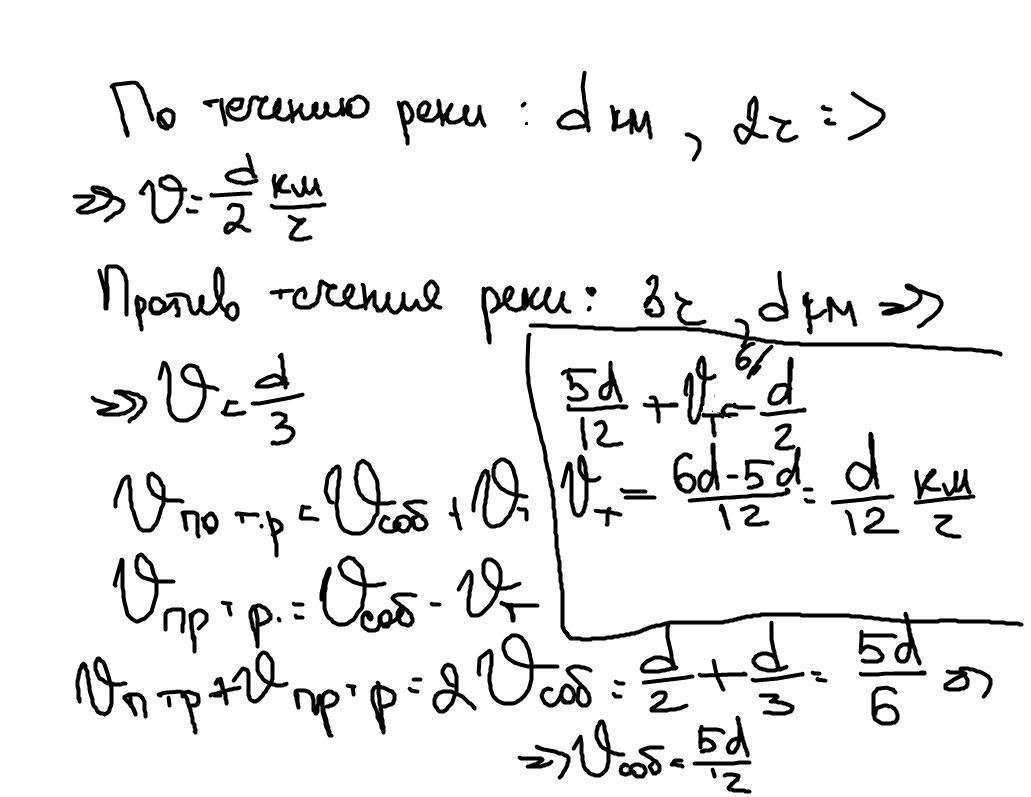 По течению реки : d км , 2ч =>
=> v = d/2 км/ч
Против течения реки : 3ч , d км =>
=> v = d/3
v по т.р = v соб + v т
v пр т р. = v соб - v т
v п т р + v пр т р = 2 v соб = d/2 + d/3 = 5d/6 =>
=> v соб = 5d/12
5d/12 + v т = d/2 6/
v т = (6d-5d)/12 = d/12 км/ч